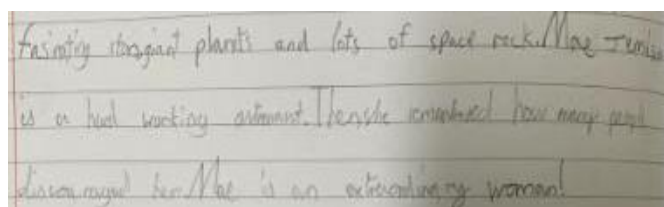 plants and lots of space rock. Mae Jemison
is a hard working astronaut. Then she remembered how many peopl
discouraged her. Mae is an extraordinary woman!